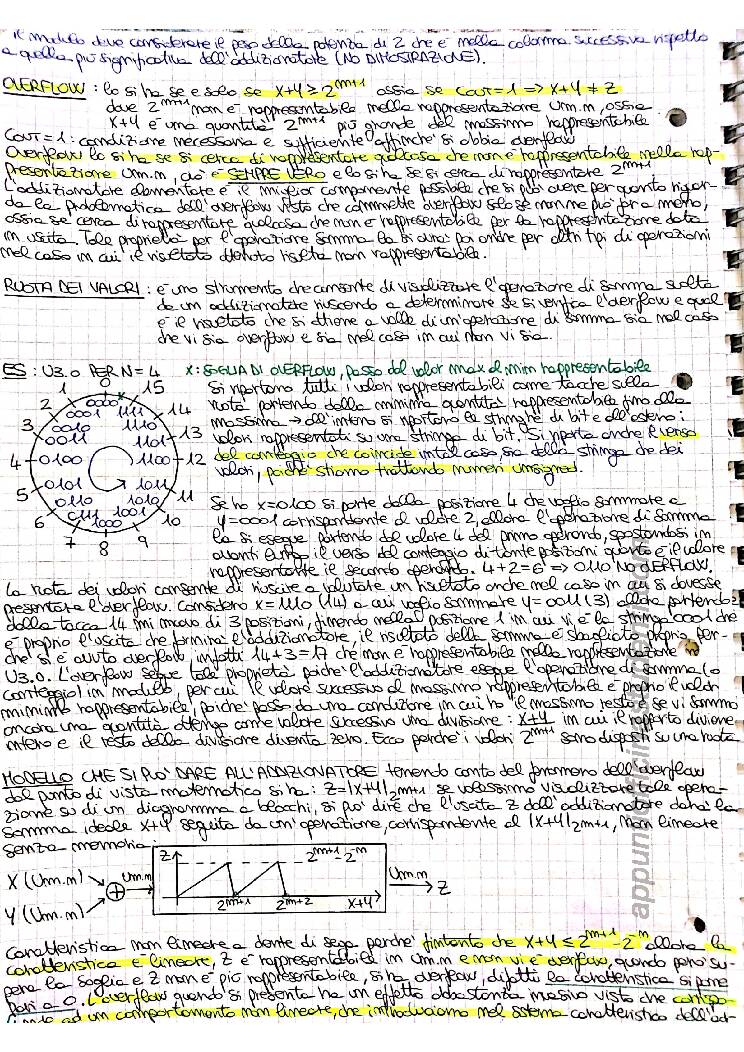 il modulo deve considerare il peso della potenza di 2 che è nella colonna successiva rispetto
a quella più significativa dell'addizionatore (NO DIMOSTRAZIONE).
OVERFLOW : lo si ha se e solo se x+y ≥ 2^m+1 ossia se cout=1 => x+y ≠ z
dove 2^m+1 non è rappresentabile nella rappresentazione Um.n, ossia
x+y è una quantità 2^m+1 più grande del massimo rappresentabile
Cout=1: condizione necessaria e sufficiente affinché si abbia overflow
Overflow lo si ha se si cerca di rappresentare qualcosa che non è rappresentabile nella rap-
presentazione Um.n, ciò è SEMPRE VERO e lo si ha se si cerca di rappresentare 2^m+1
L'addizionatore elementare è il miglior componente possibile che si può avere per quanto riguar-
da la problematica dell'overflow visto che commette overflow solo se non ne può far a meno,
ossia se cerca di rappresentare qualcosa che non è rappresentabile per la rappresentazione data
in uscita. Tale proprietà per l'operazione somma la si avrà poi anche per altri tipi di operazioni
nel caso in cui il risultato ottenuto risulta non rappresentabile.
RUOTA DEI VALORI : è uno strumento che consente di visualizzare l'operazione di somma svolta
da un addizionatore riuscendo a determinare se si verifica l'overflow e qual
è il risultato che si ottiene a valle di un'operazione di somma sia nel caso
che vi sia overflow e sia nel caso in cui non vi sia.
ES : U3.0 PER N=4 x: SOGLIA DI OVERFLOW, passo dal valor max al min rappresentabile
Si riportano tutti i valori rappresentabili come tacche sulla
ruota partendo dalla minima quantità rappresentabile fino alla
massima → all'interno si riportano le stringhe di bit e all'esterno i
valori rappresentati su una stringa di bit. Si riporta anche il verso
del conteggio che coincide in tal caso, sia della stringa che dei
valori, poiché stiamo trattando numeri unsigned.
0 1 2 3 4 5 6 7 8 9 10 11 12 13 14 15
0000 0001 0010 0011 0100 0101 0110 0111 1000 1001 1010 1011 1100 1101 1110 1111
Se ho x=0100 si parte dalla posizione 4 che voglio sommare a
y=0001 corrispondente al valore 2, allora l'operazione di somma
la si esegue partendo dal valore 4 del primo operando, spostandosi in
avanti lungo il verso del conteggio di tante posizioni quanto è il valore
rappresentante il secondo operando. 4+2=6 => 0110 NO OVERFLOW.
La ruota dei valori consente di riuscire a valutare un risultato anche nel caso in cui si dovesse
presentare l'overflow. Considero x=1110 (14) a cui voglio sommare y=0011 (3) allora partendo
dalla tacca 14 mi muovo di 3 posizioni, finendo nella posizione 1 in cui vi è la stringa 0001 che
è proprio l'uscita che fornirà l'addizionatore, il risultato della somma è sbagliato proprio per-
ché si è avuto overflow infatti 14+3=17 che non è rappresentabile nella rappresentazione
U3.0. L'overflow segue tale proprietà poiché l'addizionatore esegue l'operazione di somma (o
conteggio) in modulo, per cui il valore successivo al massimo rappresentabile è proprio il valor
minimo rappresentabile, poiché passo da una condizione in cui ho il massimo resto e se vi sommo
ancora una quantità ottengo come valore successivo una divisione : x+y in cui il rapporto diviene
intero e il resto della divisione diventa zero. Ecco perché i valori 2^m+1 sono disposti su una ruota.
MODELLO CHE SI PUO' DARE ALL'ADDIZIONATORE tenendo conto del fenomeno dell'overflow
dal punto di vista matematico si ha : z=|x+y|2^m+1 se volessimo visualizzare tale opera-
zione su di un diagramma a blocchi, si può dire che l'uscita z dell'addizionatore darà la
somma ideale x+y seguita da un'operazione, corrispondente al |x+y|2^m+1, non lineare
senza memoria :
X (Um.n) Y (Um.n) + Um.n Z 2^m+1-2^-n 2^m+1 2^m+2 x+y Um.n Z
Caratteristica non lineare a dente di sega perché fintanto che x+y ≤ 2^m+1-2^-n allora la
caratteristica è lineare, z è rappresentabile in Um.n e non vi è overflow, quando però su-
pera la soglia e z non è più rappresentabile, si ha overflow, difatti la caratteristica si pone
pari a 0. L'overflow quando si presenta ha un effetto abbastanza massivo visto che corrispo-
nde ad un comportamento non lineare, che introduciamo nel sistema caratteristica dell'ad-